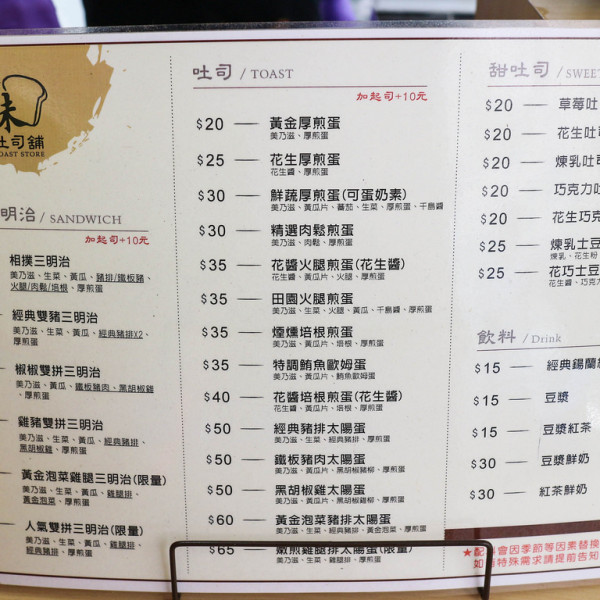 味
吐司舖
OAST STORE
明治 / SANDWICH
加起司+10元
相撲三明治
美乃滋、生菜、黃瓜、豬排/鐵板豬、
火腿/肉鬆/培根、厚煎蛋
經典雙豬三明治
美乃滋、生菜、黃瓜、經典豬排X2、
厚煎蛋
椒椒雙拼三明治
美乃滋、黃瓜、鐵板豬肉、黑胡椒雞
、厚煎蛋
雞豬雙拼三明治
美乃滋、生菜、黃瓜、經典豬排、
黑胡椒雞、厚煎蛋
黃金泡菜雞腿三明治(限量)
美乃滋、生菜、黃瓜、雞腿排、
黃金泡菜、厚煎蛋
人氣雙拼三明治(限量)
美乃滋、生菜、黃瓜、雞腿排、
經典豬排、厚煎蛋
吐司 / TOAST
加起司+10元
$20 黃金厚煎蛋
美乃滋、厚煎蛋
$25 花生厚煎蛋
花生醬、厚煎蛋
$30 鮮蔬厚煎蛋(可蛋奶素)
美乃滋、黃瓜片、蕃茄、生菜、厚煎蛋、千島醬
$30 精選肉鬆煎蛋
美乃滋、肉鬆、厚煎蛋
$35 花醬火腿煎蛋(花生醬)
花生醬、黃瓜片、火腿、厚煎蛋
$35 田園火腿煎蛋
美乃滋、生菜、火腿、黃瓜、千島醬、厚煎蛋
$35 煙燻培根煎蛋
美乃滋、黃瓜片、培根、厚煎蛋
$35 特調鮪魚歐姆蛋
美乃滋、黃瓜片、鮪魚歐姆蛋
$40 花醬培根煎蛋(花生醬)
花生醬、黃瓜片、培根、厚煎蛋
$50 經典豬排太陽蛋
美乃滋、生菜、經典豬排、厚煎蛋
$50 鐵板豬肉太陽蛋
美乃滋、黃瓜片、黑胡椒豬柳、厚煎蛋
$50 黑胡椒雞太陽蛋
美乃滋、黃瓜片、黑胡椒雞柳、厚煎蛋
$60 黃金泡菜豬排太陽蛋
美乃滋、生菜、經典豬排、黃金泡菜、厚煎蛋
$65 嫩煎雞腿排太陽蛋(限量)
美乃滋、生菜、雞腿排、厚煎蛋
甜吐司 / SWEET
$20 草莓吐
$20 花生吐
$20 煉乳吐
$20 巧克力吐
$20 花生巧克
$25 煉乳士豆
煉乳、花生粉
$25 花巧士豆
花生醬、巧克力
飲料 / Drink
$15 經典錫蘭紅
$15 豆漿
$15 豆漿紅茶
$30 豆漿鮮奶
$30 紅茶鮮奶
★配料會因季節等因素替換
如有特殊需求請提前告知